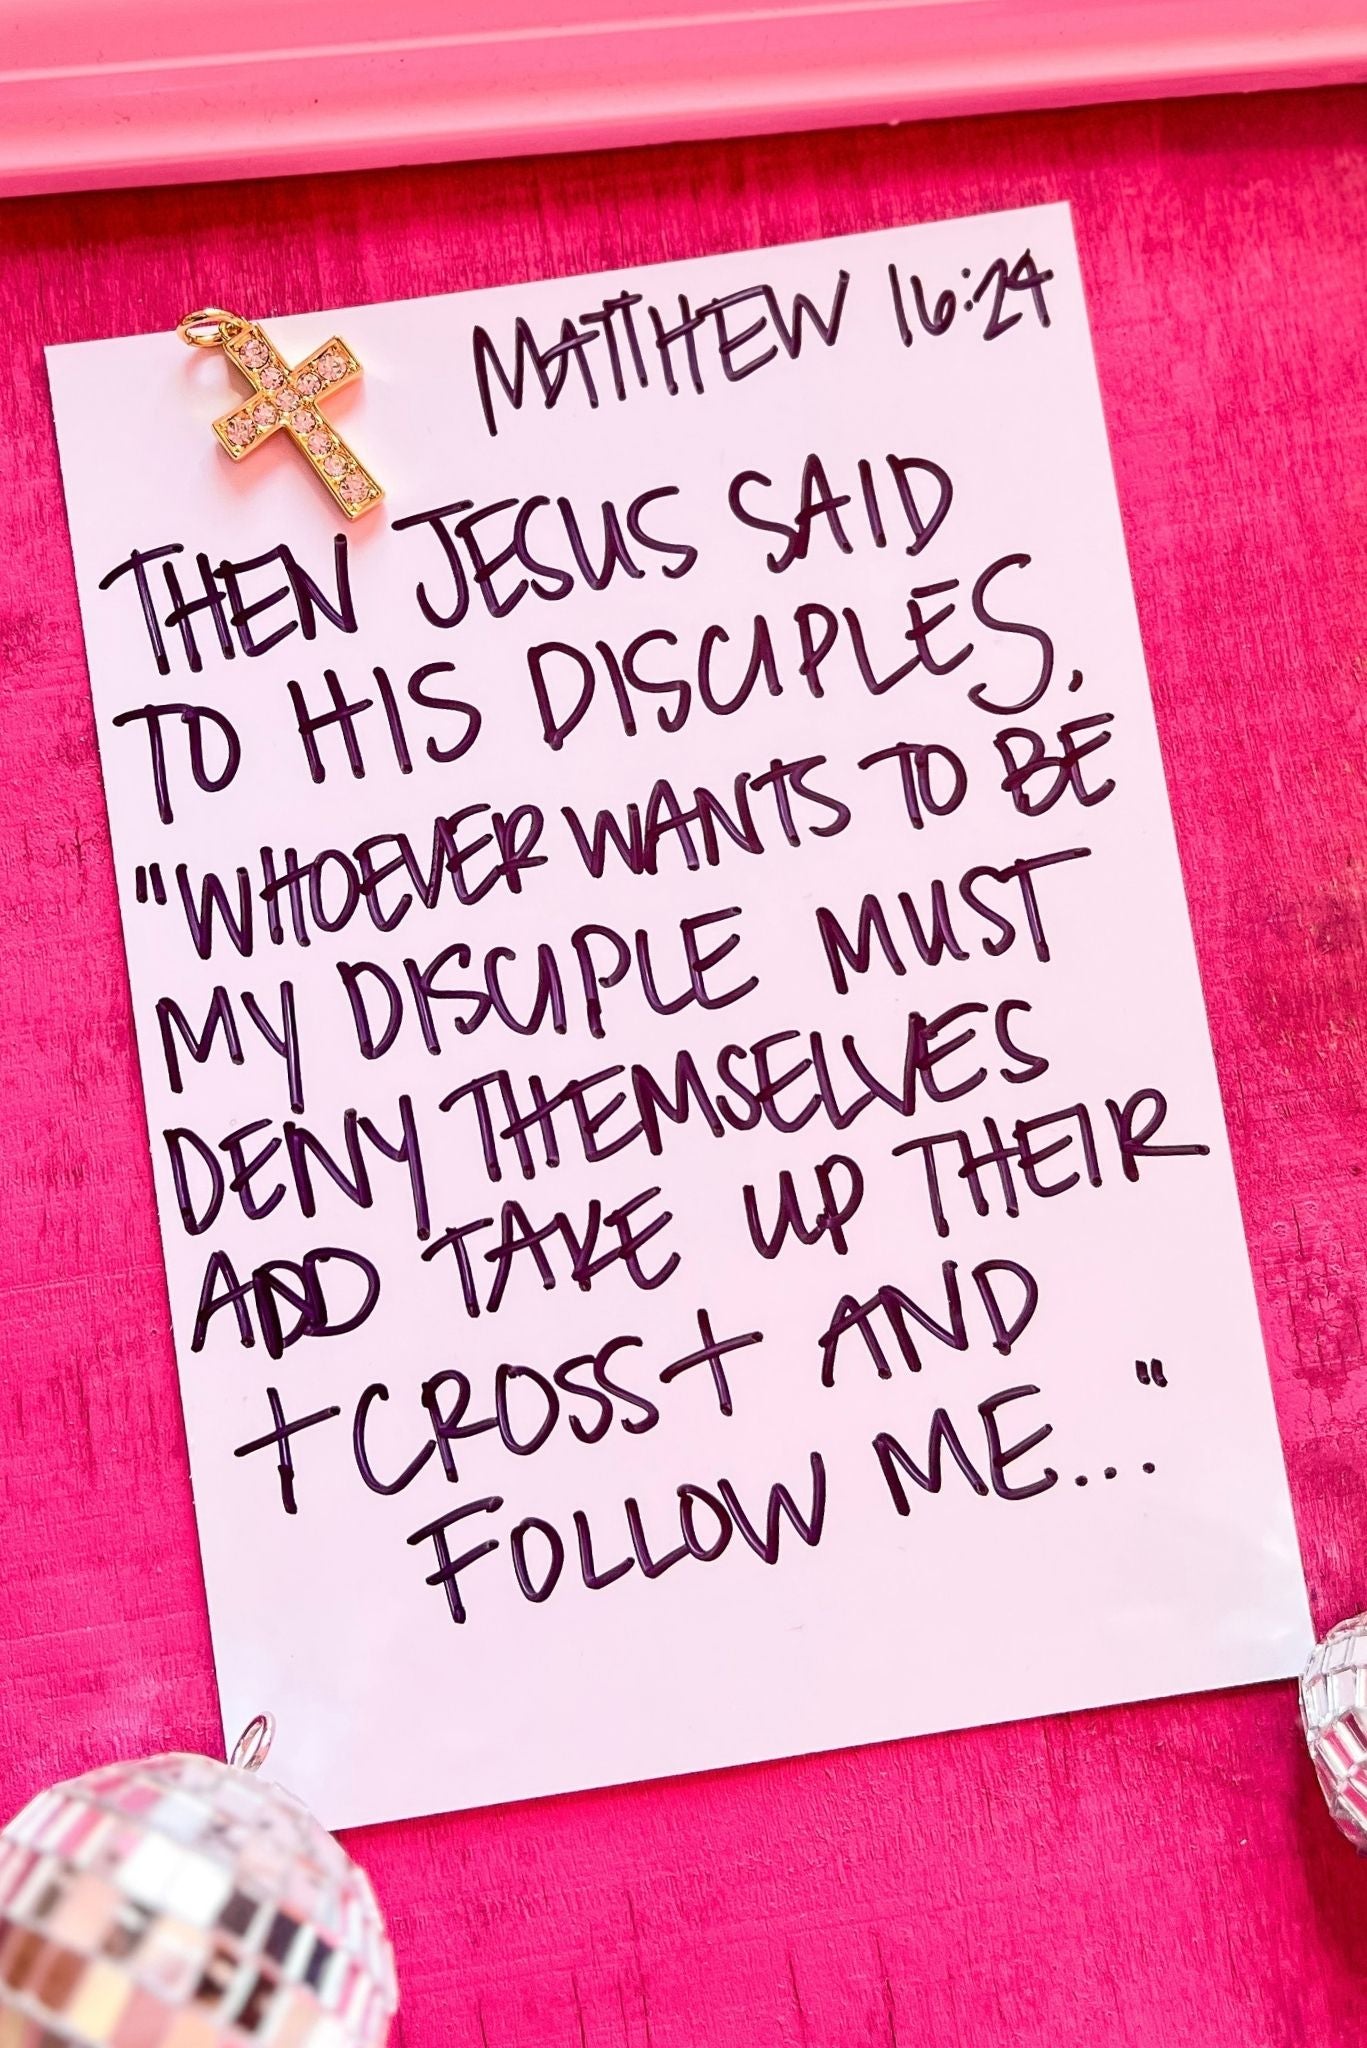 MATTHEW 16:24
THEN JESUS SAID
TO HIS DISCIPLES,
"WHOEVER WANTS TO BE
MY DISCIPLE MUST
DENY THEMSELVES
ADD TAKE UP THEIR
+CROSS+ AND
FOLLOW ME..."